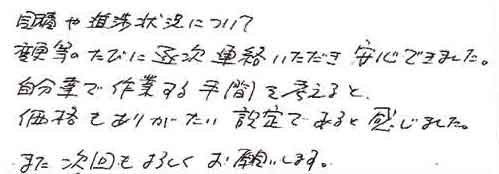 日程や進捗状況について
変更等のたびに逐次連絡いただき安心できました。
自分達で作業する手間を考えると、
価格もありがたい設定であると感じました。
また次回もよろしくお願いします。